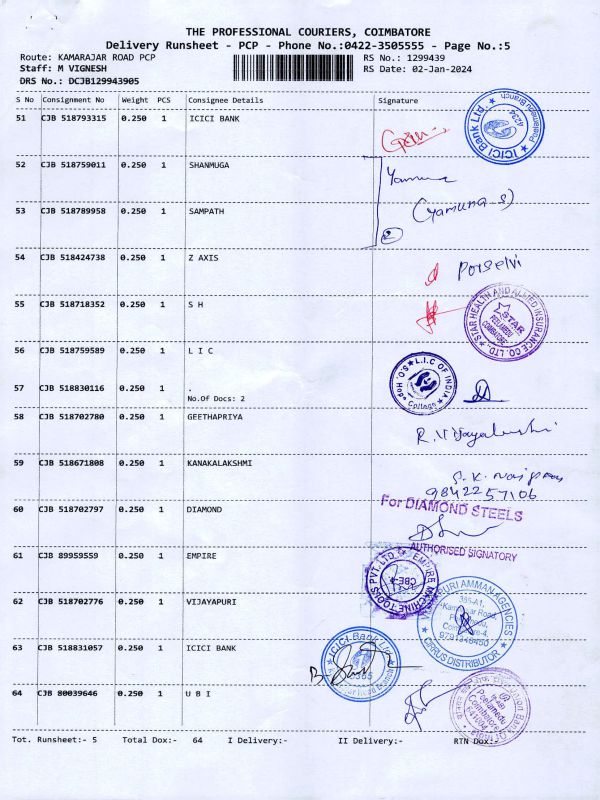 THE PROFESSIONAL COURIERS, COIMBATORE
Delivery Runsheet - PCP - Phone No.:0422-3505555 - Page No.:5
Route: KAMARAJAR ROAD PCP
RS No.: 1299439
Staff: M VIGNESH
RS Date: 02-Jan-2024
DRS No.: DCJB129943905
S No Consignment No Weight PCS Consignee Details Signature
51 CJB 518793315 0.250 1 ICICI BANK
ICICI Bank Ltd. Peelamedu Branch 4234
52 CJB 518759011 0.250 1 SHANMUGA
Yamuna
(Yamuna S)
53 CJB 518789958 0.250 1 SAMPATH
2
54 CJB 518424738 0.250 1 Z AXIS
Porselvi
55 CJB 518718352 0.250 1 S H
STAR HEALTH AND ALLIED INSURANCE CO. LTD. STAR PEELAMEDU COIMBATORE
56 CJB 518759589 0.250 1 L I C
L.I.C OF INDIA Hope College
57 CJB 518830116 0.250 1 .
No.Of Docs: 2
58 CJB 518702780 0.250 1 GEETHAPRIYA
R. Vijayalakshmi
59 CJB 518671808 0.250 1 KANAKALAKSHMI
9842257106
60 CJB 518702797 0.250 1 DIAMOND
For DIAMOND STEELS
AUTHORISED SIGNATORY
61 CJB 89959559 0.250 1 EMPIRE
EMPIRE MACHINE TOOLS PVT. LTD CBE-4
62 CJB 518702776 0.250 1 VIJAYAPURI
AMMAN AGENCIES
Kamarajar Road,
9791348450
DISTRIBUTOR
63 CJB 518831057 0.250 1 ICICI BANK
ICICI Bank Ltd.
64 CJB 80039646 0.250 1 U B I
Union Bank Of India
Peelamedu
Coimbatore
641004
Tot. Runsheet:- 5 Total Dox:- 64 I Delivery:- II Delivery:- RTN Dox:-